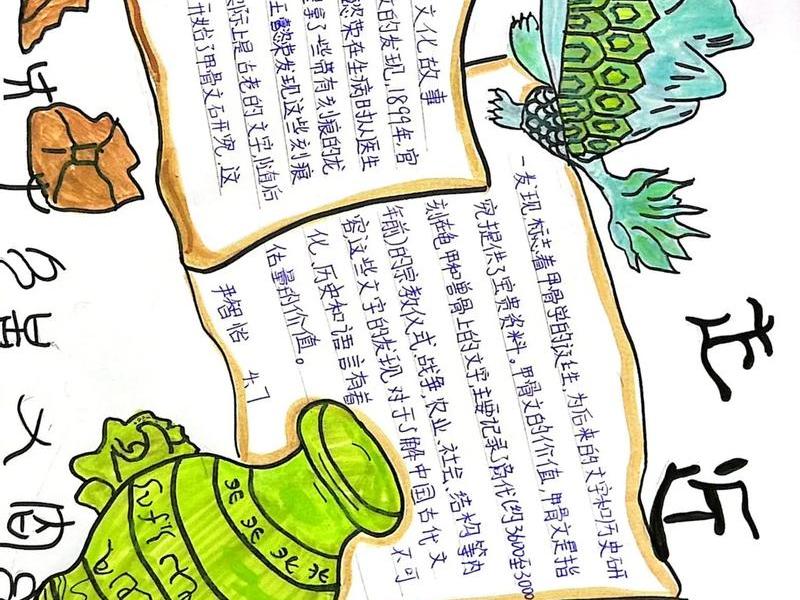 走近
文化故事
文的发现,1899年,官
懿荣在生病时从医生
拿了些带有刻痕的龙
王懿荣发现这些刻痕
实际上是古老的文字,随后
开始了甲骨文石开究,这
一发现标志着甲骨学的诞生,为后来的文字和历史研
究提供了宝贵资料。甲骨文的价值,甲骨文是指
刻在龟甲和兽骨上的文字,主要记录了商代(约3600至3000
年前)的宗教仪式、战争、农业、社会、结构等内
容,这些文字的发现,对于了解中国古代文
化、历史和语言有着不可
估量的价值。
4.7